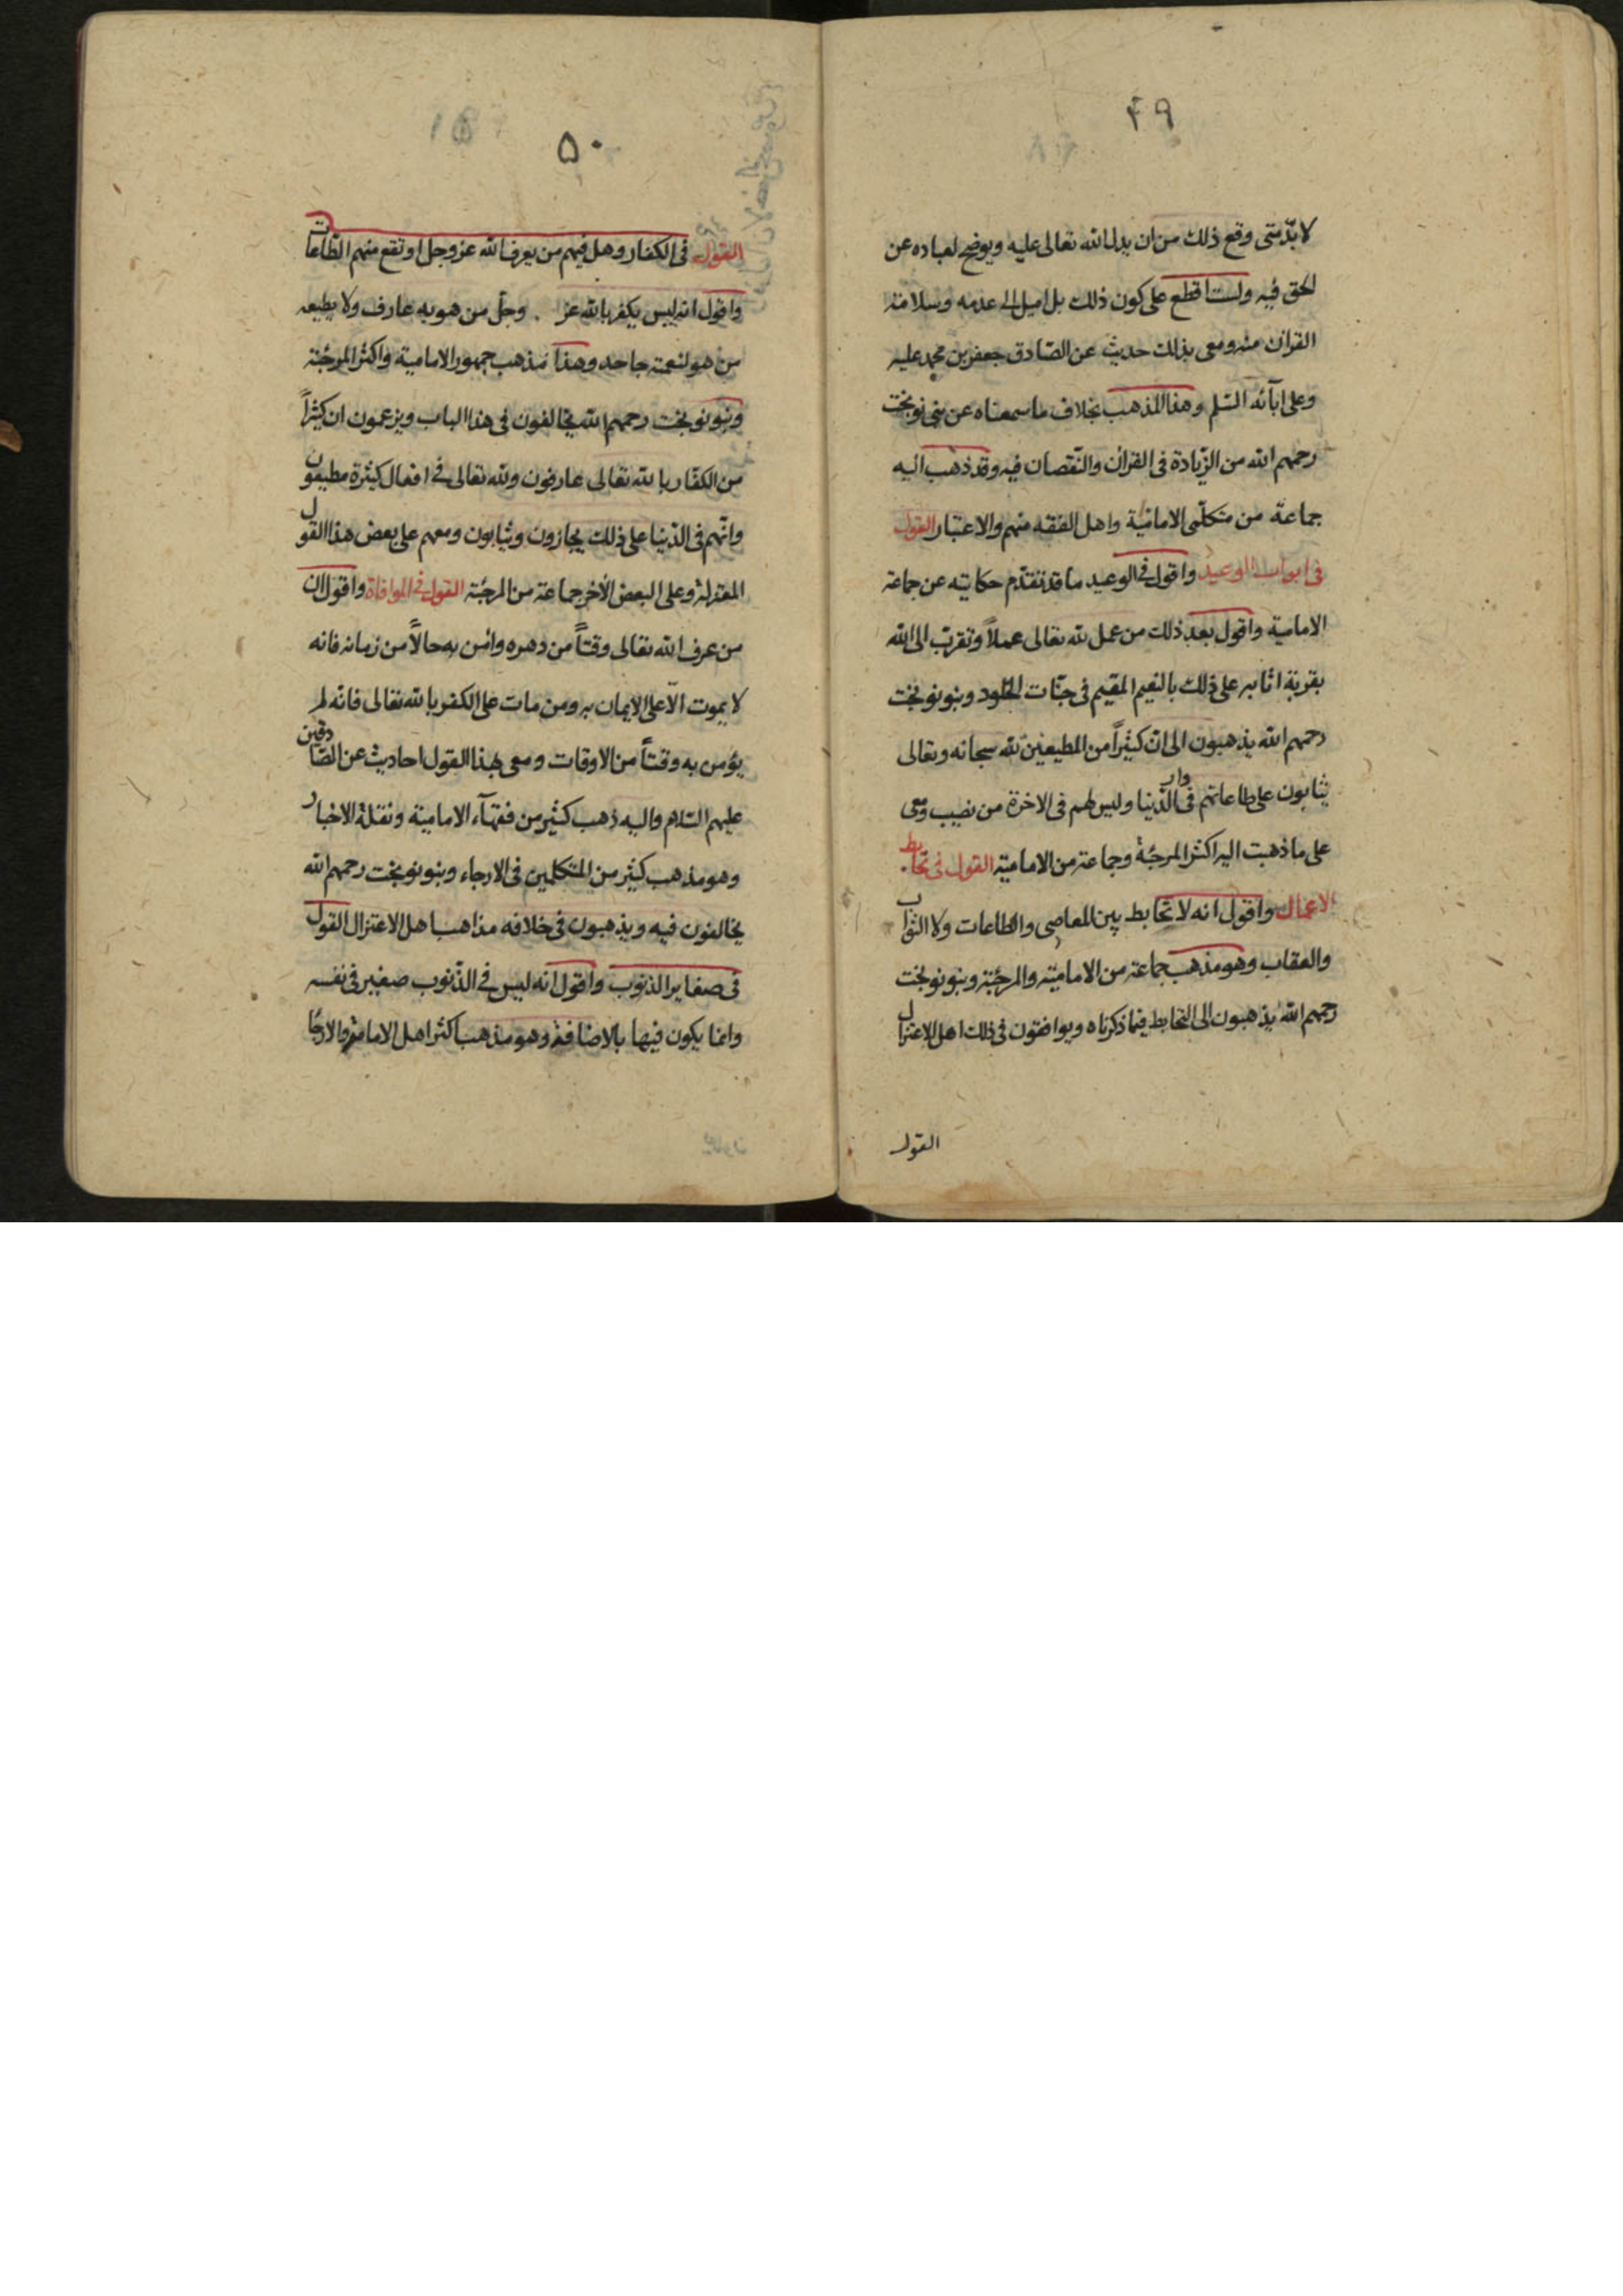 ٤٩
لا بدّ متى وقع ذلك من ان يدل الله تعالى عليه ويوضح لعباده عن
الحق فيه ولست اقطع على كون ذلك بل اميل الى عدمه وسلامة
القران منه ومعى بذلك حديث عن الصّادق جعفر بن محمد عليه
وعلى ابآئه السّلم وهذا المذهب بخلاف ما سمعناه عن بنى نوبخت
رحمهم الله من الزّيادة فى القران والنّقصان فيه وقد ذهب اليه
جماعة من متكلّمى الاماميّة واهل الفقه منهم والاعتبار القول
فى ابواب الوعيد واقول فى الوعيد ما قد تقدّم حكايته عن جماعة
الامامية واقول بعد ذلك من عمل لله تعالى عملاً وتقرّب الى الله
بقربة اثابه على ذلك بالنعيم المقيم فى جنّات الخلود وبنو نوبخت
رحمهم الله يذهبون الى انّ كثيراً من المطيعين لله سبحانه وتعالى
يثابون على طاعاتهم فى دار الدّينا وليس لهم فى الاخرة من نصيب ومعى
على ما ذهبت اليه اكثر المرجئة وجماعة من الاماميّة القول فى تحابط
الاعمال واقول انه لا تحابط بين المعاصى والطاعات ولا الثواب
والعقاب وهو مذهب جماعة من الاماميّة والمرجئة وبنو نوبخت
رحمهم الله يذهبون الى التحابط فيما ذكرناه ويوافقون فى ذلك اهل الاعتزال
القول
٥٠
القول فى الكفار وهل فيهم من يعرف الله عز وجل او تقع منهم الطّاعات
واقول انه ليس يكفر بالله عز وجلّ من هو به عارف ولا يطيعه
من هو لنعمته جاحد وهذا مذهب جمهور الامامية واكثر المرجئة
وبنو نوبخت رحمهم الله يخالفون فى هذا الباب ويزعمون ان كثيراً
من الكفّار بالله تعالى عارفون ولله تعالى فى افعال كثيرة مطيعون
وانّهم فى الدّنيا على ذلك يجازون ويثابون ومعهم على بعض هذا القول
المعتزلة وعلى البعض الاخر جماعة من المرجئة القول فى الموافاة واقول ان
من عرف الله تعالى وقتاً من دهره وامن به حالاً من زمانه فانه
لا يموت الّا على الايمان به ومن مات على الكفر بالله تعالى فانّه لم
يؤمن به وقتاً من الاوقات ومعى بهذا القول احاديث عن الصّادقين
عليهم السّلام واليه ذهب كثير من فقهآء الاماميّة ونقلة الاخبار
وهو مذهب كثير من المتكلمين فى الارجاء وبنو نوبخت رحمهم الله
يخالفون فيه ويذهبون فى خلافه مذاهب اهل الاعتزال القول
فى صغاير الذنوب واقول انه ليس فى الذّنوب صغير فى نفسه
وانما يكون فيها بالاضافة وهو مذهب اكثر اهل الامامة والارجا